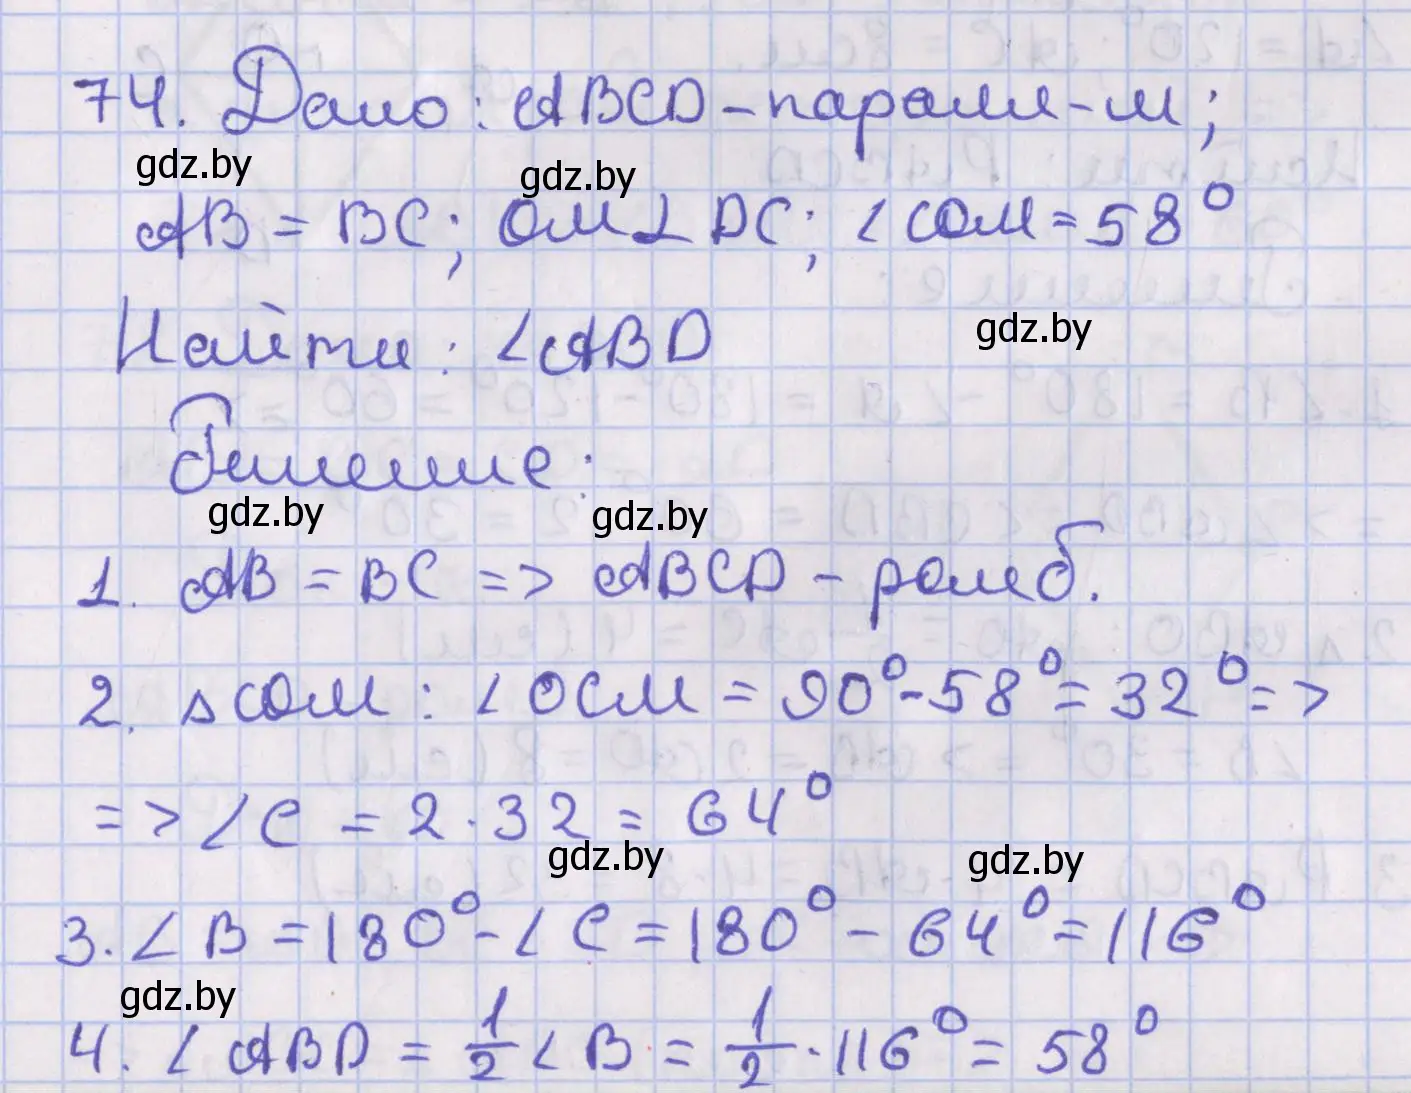 74. Дано: ABCD - паралл-м;
gdz.by gdz.by
AB = BC; OM ⊥ DC; ∠COM = 58°
gdz.by
Найти: ∠ABD
Решение:
gdz.by gdz.by
1. AB = BC => ABCD - ромб.
2. ΔCOM: ∠OCM = 90° - 58° = 32° =>
=> ∠C = 2 · 32 = 64°
gdz.by gdz.by
3. ∠B = 180° - ∠C = 180° - 64° = 116°
gdz.by
4. ∠ABD = 1/2 ∠B = 1/2 · 116° = 58°